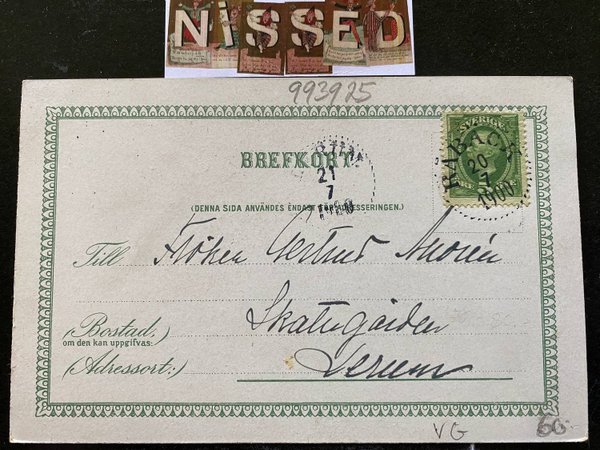 NISSED
993925
SVERIGE
BREFKORT
RÅBÄCK
20
7
1900
21
7
1900
(DENNA SIDA ANVÄNDES ENDAST FÖR ADRESSERINGEN.)
Till Fröken Gertrud Morén
(Bostad, Skattegården
om den kan uppgifvas:)
(Adressort:) Lerum
VG
60:-